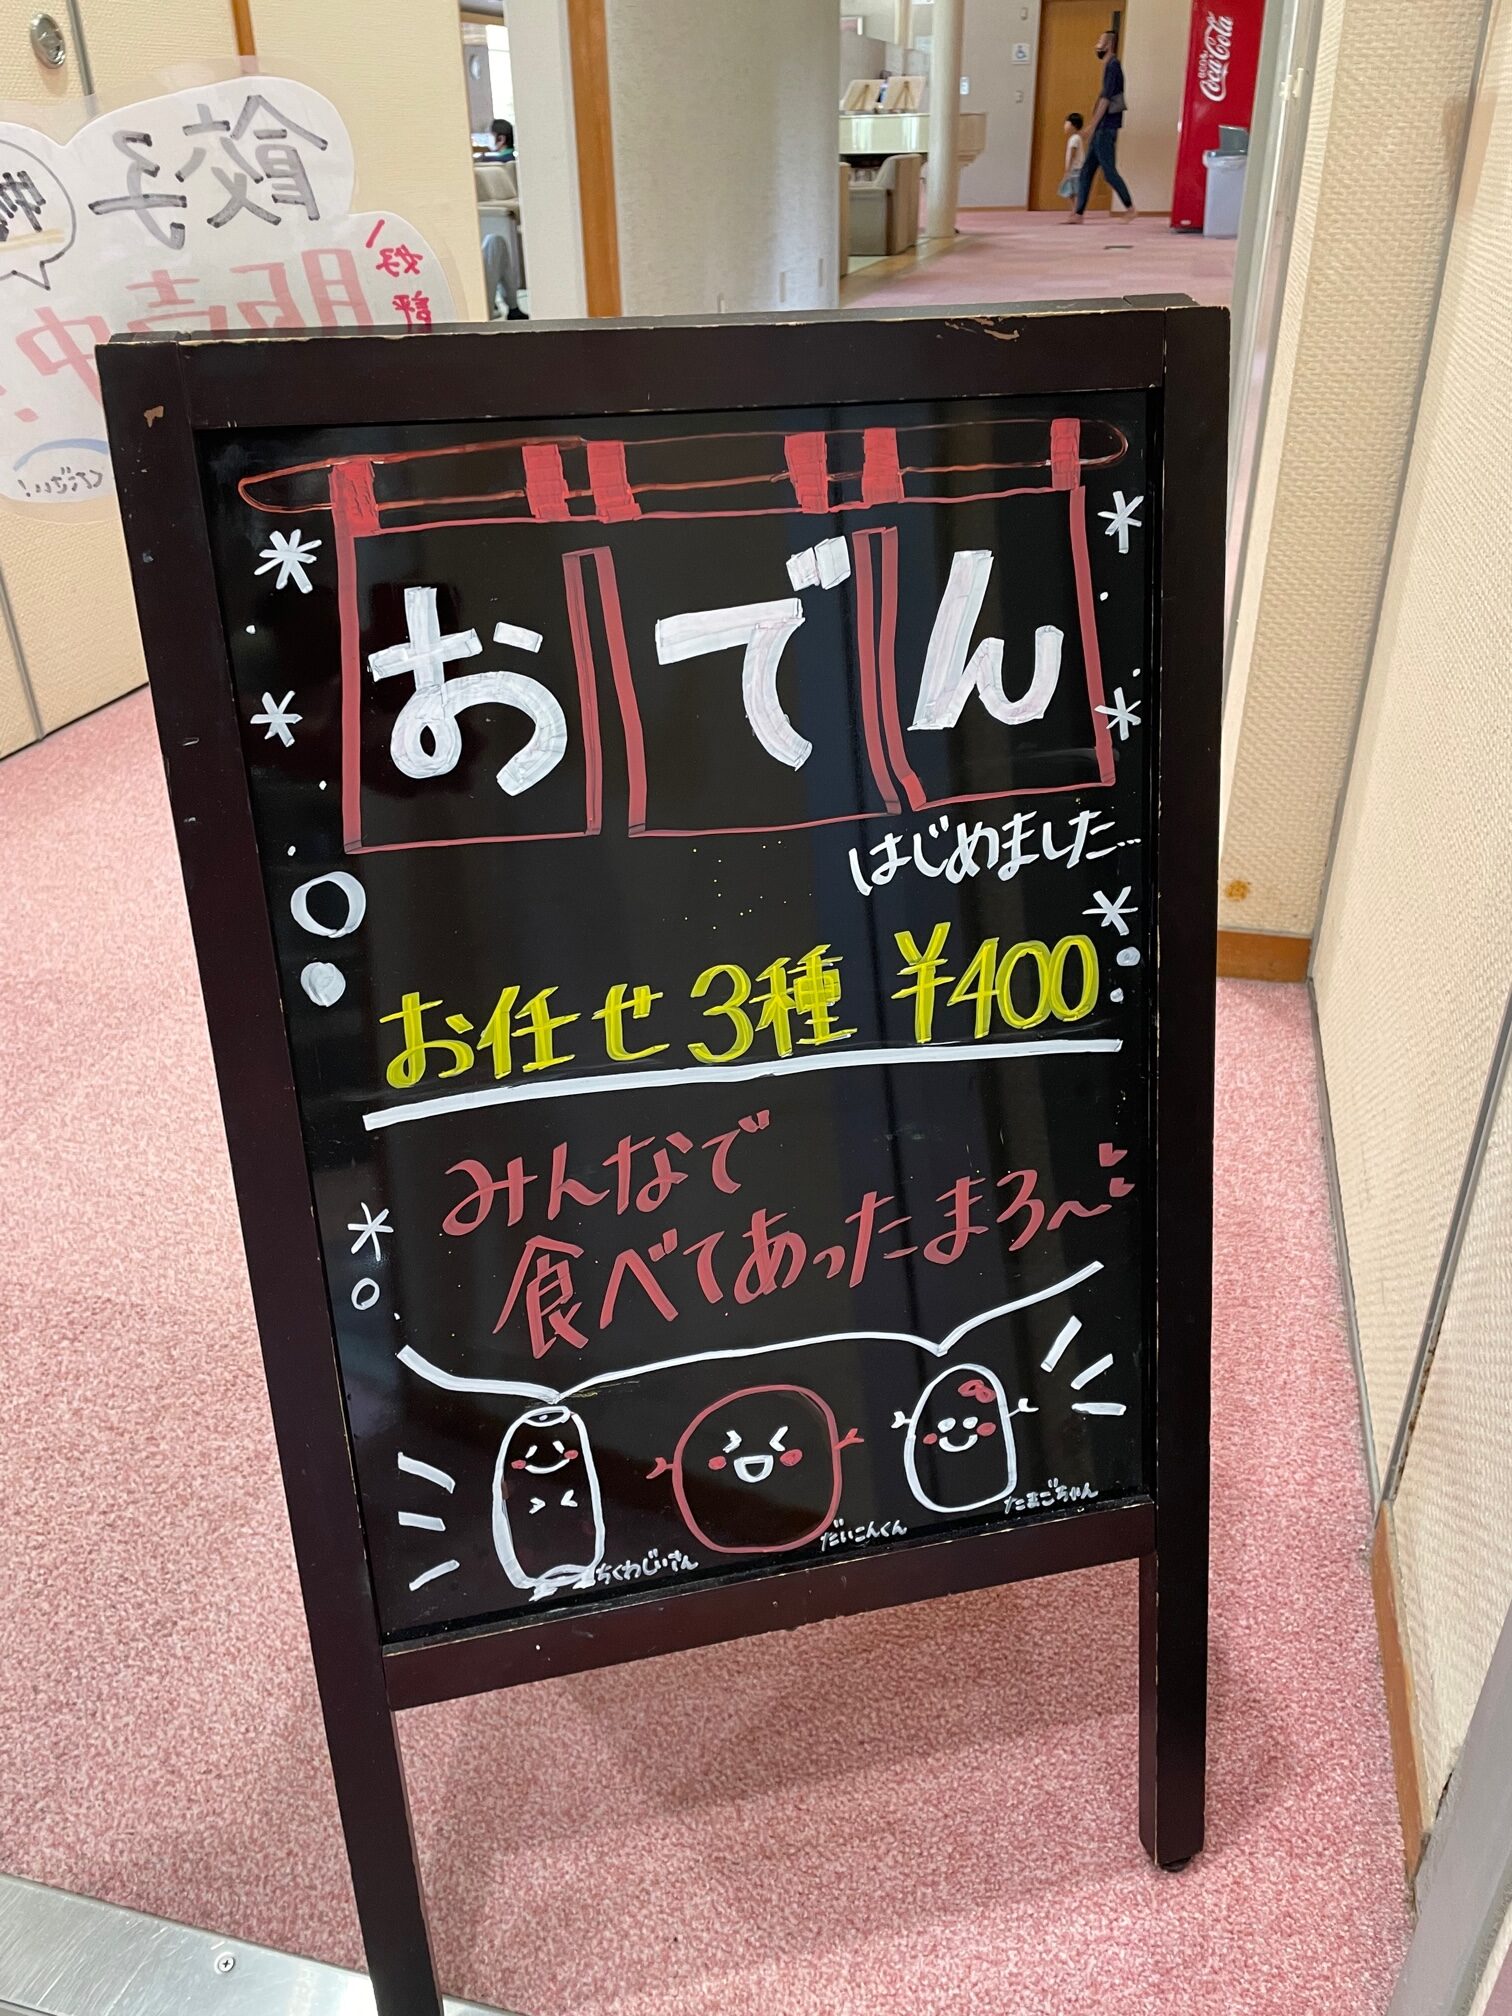 餃子
好評
販売中!
ください!
Coca-Cola
おでん
はじめました…
お任せ3種 ¥400
みんなで
食べてあったまろ〜
ちくわじいさん
だいこんくん
たまごちゃん